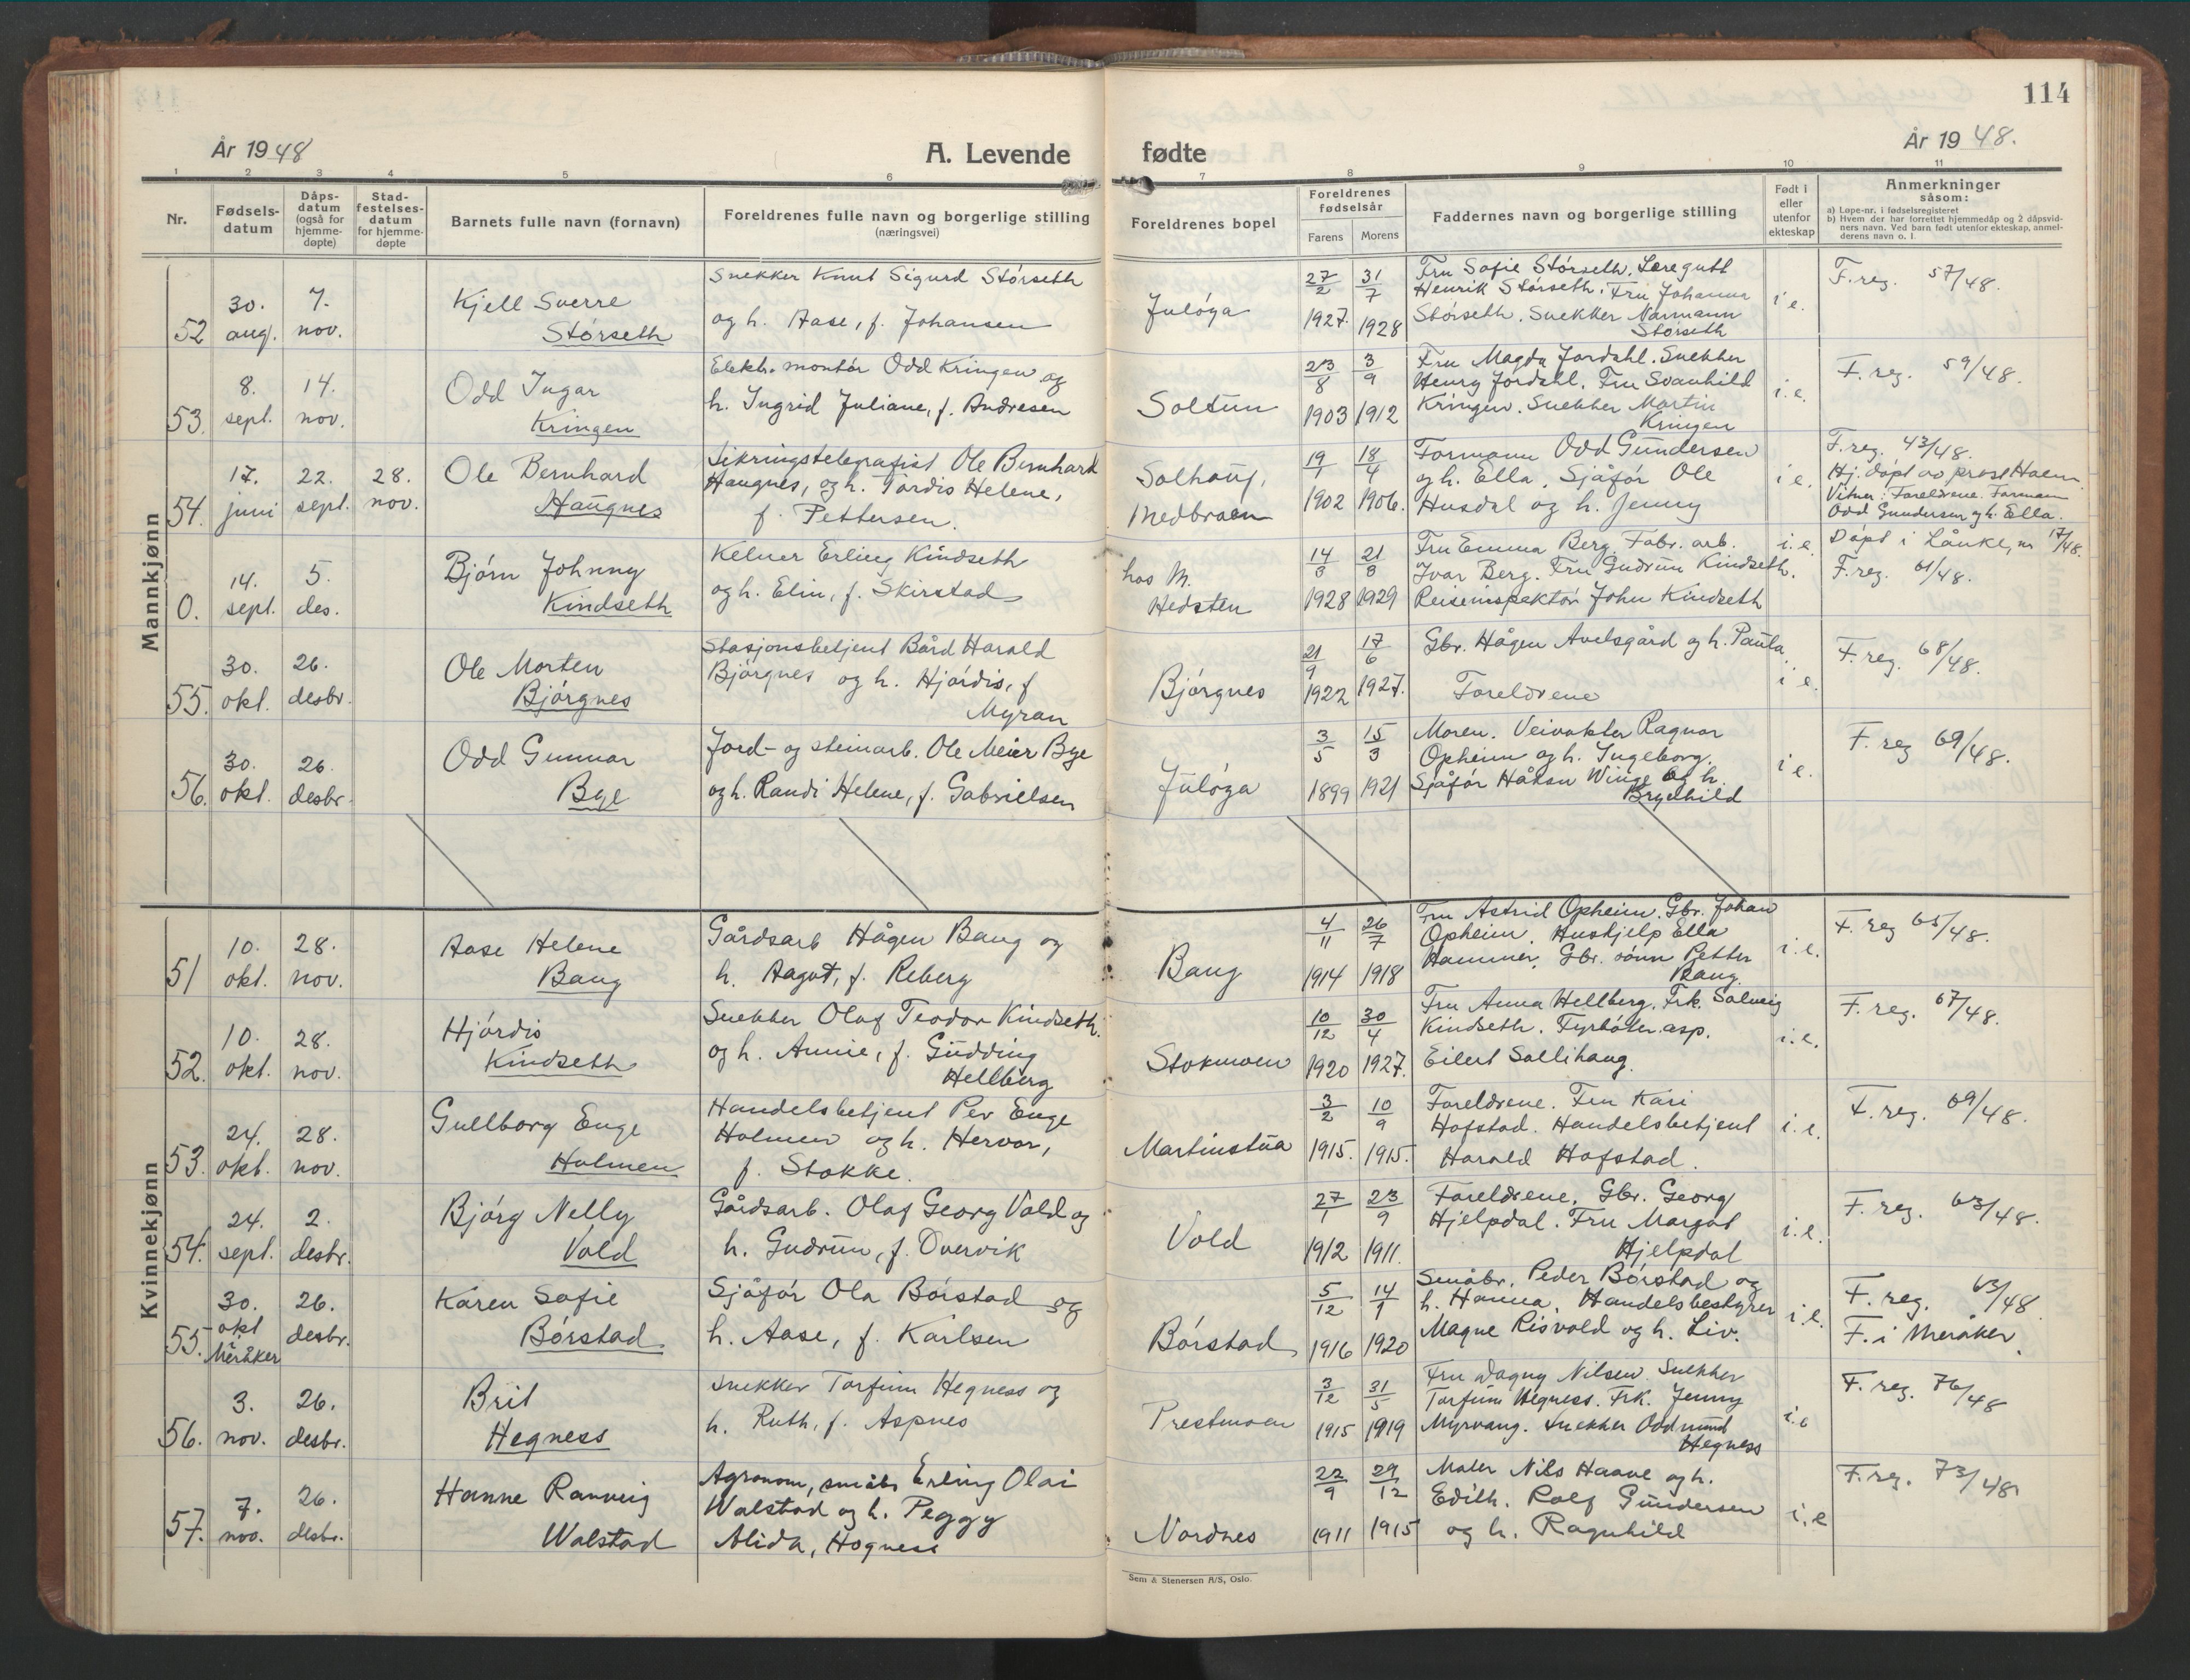 114
År 1948
A. Levende fødte
År 1948.
1 2 3 4 5 6 7 8 9 10 11
Nr.
Fødsels-
datum
Dåps-
datum
(også for
hjemme-
døpte)
Stad-
festelses-
datum
for hjemme-
døpte
Barnets fulle navn (fornavn)
Foreldrenes fulle navn og borgerlige stilling
(næringsvei)
Foreldrenes bopel
Foreldrenes
fødselsår
Farens Morens
Faddernes navn og borgerlige stilling
Født i
eller
utenfor
ekteskap
Anmerkninger
såsom:
a) Løpe-nr. i fødselsregisteret
b) Hvem der har forrettet hjemmedåp og 2 dåpsvid-
ners navn. Ved barn født utenfor ekteskap, anmel-
derens navn o. l.
Mannkjønn
52
30.
aug.
7.
nov.
Kjell Sverre
Størseth
Snekker Knut Sigurd Størseth
og h. Aase, f. Johansen
Juløga
27/2
1927.
31/7
1928
Fru Sofie Størseth. Læregutt
Henrik Størseth. Fru Johanna
Størseth. Snekker Normann
Størseth
i e.
F. reg. 57/48.
53.
8.
sept.
14.
nov.
Odd Ingar
Kringen
Elektr. montør Odd Kringen og
h. Ingrid Juliane, f. Andresen
Soltun
23/8
1903
3/9
1912
Fru Magda Jordahl. Snekker
Henry Jordahl. Fru Svanhild
Kringen. Snekker Martin
Kringen
i. e.
F. reg. 59/48.
54.
17.
juni
22.
sept.
28.
nov.
Ole Bernhard
Haugnes
Sikringstelegrafist Ole Bernhard
Haugnes, og h. Tordis Helene,
f. Pettersen.
Solhaug,
Medbroen
19/1
1902
18/4
1906.
Formann Odd Gundersen
og h. Ella. Sjåfør Ole
Husdal og h. Jenny
i e.
F. reg. 43/48.
Hj. døpt av prost Hoem
Vitner: Foreldrene. Formann
Odd Gundersen og h. Ella.
0.
14.
sept.
5.
des.
Bjørn Johnny
Kindseth
Kelner Erling Kindseth
og h. Elin, f. Skirstad
hos M.
Hedsten
14/3
1928
21/8
1929
Fru Emma Berg. Fabr. arb.
Ivar Berg. Fru Gudrun Kindseth.
Reiseinspektør John Kindseth
i. e.
Døpt i Lånke, nr 17/48.
F. reg. 61/48.
55.
30.
okt.
26.
desbr.
Ole Morten
Bjørgnes
Stasjonsbetjent Bård Harald
Bjørgnes og h. Hjørdis, f
Myran
Bjørgnes
21/9
1922
17/6
1927.
Gbr. Hågen Avelsgård og h. Paula.
Foreldrene
i e.
F. reg. 68/48.
56.
30.
okt.
26.
desbr.
Odd Gunnar
Bye
Jord- og steinarb. Ole Meier Bye
og h. Randi Helene, f. Gabrielsen
Juløga
3/5
1899
15/3
1921
Moren. Veivokter Ragnar
Opheim og h. Ingeborg.
Sjåfør Håkon Winge og h.
Brynhild
i e.
F. reg 69/48.
Kvinnekjønn
51
10.
okt.
28.
nov.
Aase Helene
Bang
Gårdsarb Hågen Bang og
h. Aagot, f. Reberg
Bang
4/11
1914
26/7
1918
Fru Astrid Opheim. Gbr. Johan
Opheim. Hushjelp Ella
Hammer. Gbr. sønn Petter
Bang.
i. e.
F. reg 65/48.
52.
10.
okt.
28.
nov.
Hjørdis
Kindseth
Snekker Olaf Teodor Kindseth
og h. Annie, f. Gudding
Hellberg
Stokmoen
10/12
1920
30/4
1927.
Fru Anna Hellberg. Frk. Solveig
Kindseth. Fyrbøter asp.
Eilert Sollihaug.
i. e.
F. reg. 67/48.
53.
24.
okt.
28.
nov.
Gullborg Enge
Holmen
Handelsbetjent Per Enge
Holmen og h. Hervor,
f. Stokke.
Martinstua
3/2
1915.
10/9
1915.
Foreldrene. Fru Kari
Hofstad. Handelsbetjent
Harald Hofstad.
i. e.
F. reg. 69/48.
54.
24.
sept.
2.
desbr.
Bjørg Nelly
Vold
Gårdsarb. Olaf Georg Vold og
h. Gudrun, f. Overvik
Vold
27/1
1912
23/9
1911.
Foreldrene. Gbr. Georg
Hjelpdal. Fru Margot
Hjelpdal
i. e.
F. reg. 63/48.
55.
30.
okt
Meråker
26.
desbr.
Karen Sofie
Børstad
Sjåfør Ola Børstad og
h. Aase, f. Karlsen
Børstad
5/12
1916
14/1
1920
Småbr. Peder Børstad og
h. Hanna. Handelsbestyrer
Magne Risvold og h. Liv.
i. e.
F. reg. 63/48
F. i Meråker.
56.
3.
nov.
26.
desbr.
Brit
Hegness
Snekker Torfinn Hegness og
h. Ruth, f. Aspnes
Prestmoen
3/12
1915
31/5
1919
Fru Dagny Nilsen. Snekker
Torfinn Hegness. Frk. Jenny
Myrvang. Snekker Oddmund
Hegness
i. e
F. reg. 76/48
57.
7.
nov.
26.
desbr.
Hanne Rannveig
Walstad
Agronom, småbr Erling Olai
Walstad og h. Peggy
Alida, Hogness
Nordnes
22/9
1911
29/12
1915
Maler Nils Haave og h.
Edith. Rolf Gundersen
og h. Ragnhild
i. e
F. reg. 73/48
Sem & Stenersen A/S, Oslo.